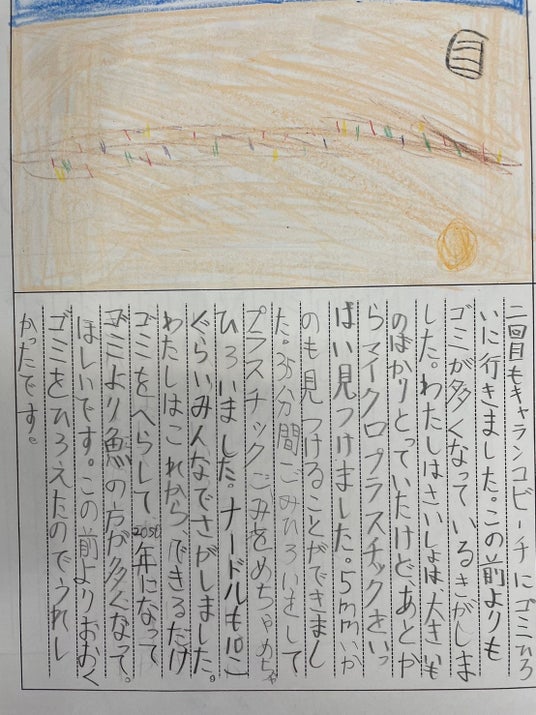 二回目もキャランコビーチにゴミひろ
いに行きました。この前よりも
ゴミが多くなっているきがしま
した。わたしはさいしょは、大きいも
のばかりとっていたけど、あとか
らマイクロプラスチックをいっ
ぱい見つけました。5mmいか
のも見つけることができまし
た。35分間ごみひろいをして
プラスチックごみをめちゃめちゃ
ひろいました。ナードルも10こ
ぐらいみんなでさがしました。
わたしはこれから、できるだけ
ゴミをへらして2050年になって
ゴミより魚の方が多くなって。
ほしいです。この前よりおおく
ゴミをひろえたのでうれし
かったです。